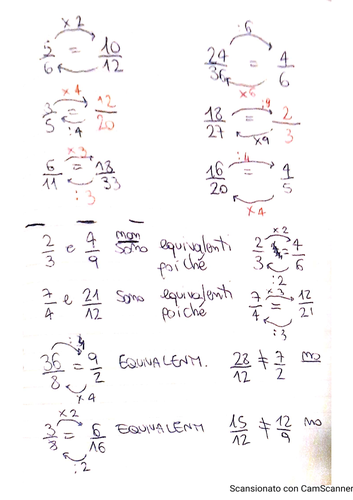 x2 :6
5/6 = 10/12 24/36 = 4/6
x4 x6 :9
3/5 = 12/20 18/27 = 2/3
:4 x9
x3 :4
6/11 = 18/33 16/20 = 4/5
:3 x4
2/3 e 4/9 non sono equivalenti poiché 2/3 = 4/6 x2 :2
7/4 e 21/12 sono equivalenti poiché 7/4 = 12/21 x3 :3
36/8 = 9/2 :4 x4 EQUIVALENTI. 28/12 ≠ 7/2 no
3/8 = 6/16 x2 :2 EQUIVALENTI 15/12 ≠ 12/9 no
Scansionato con CamScanner